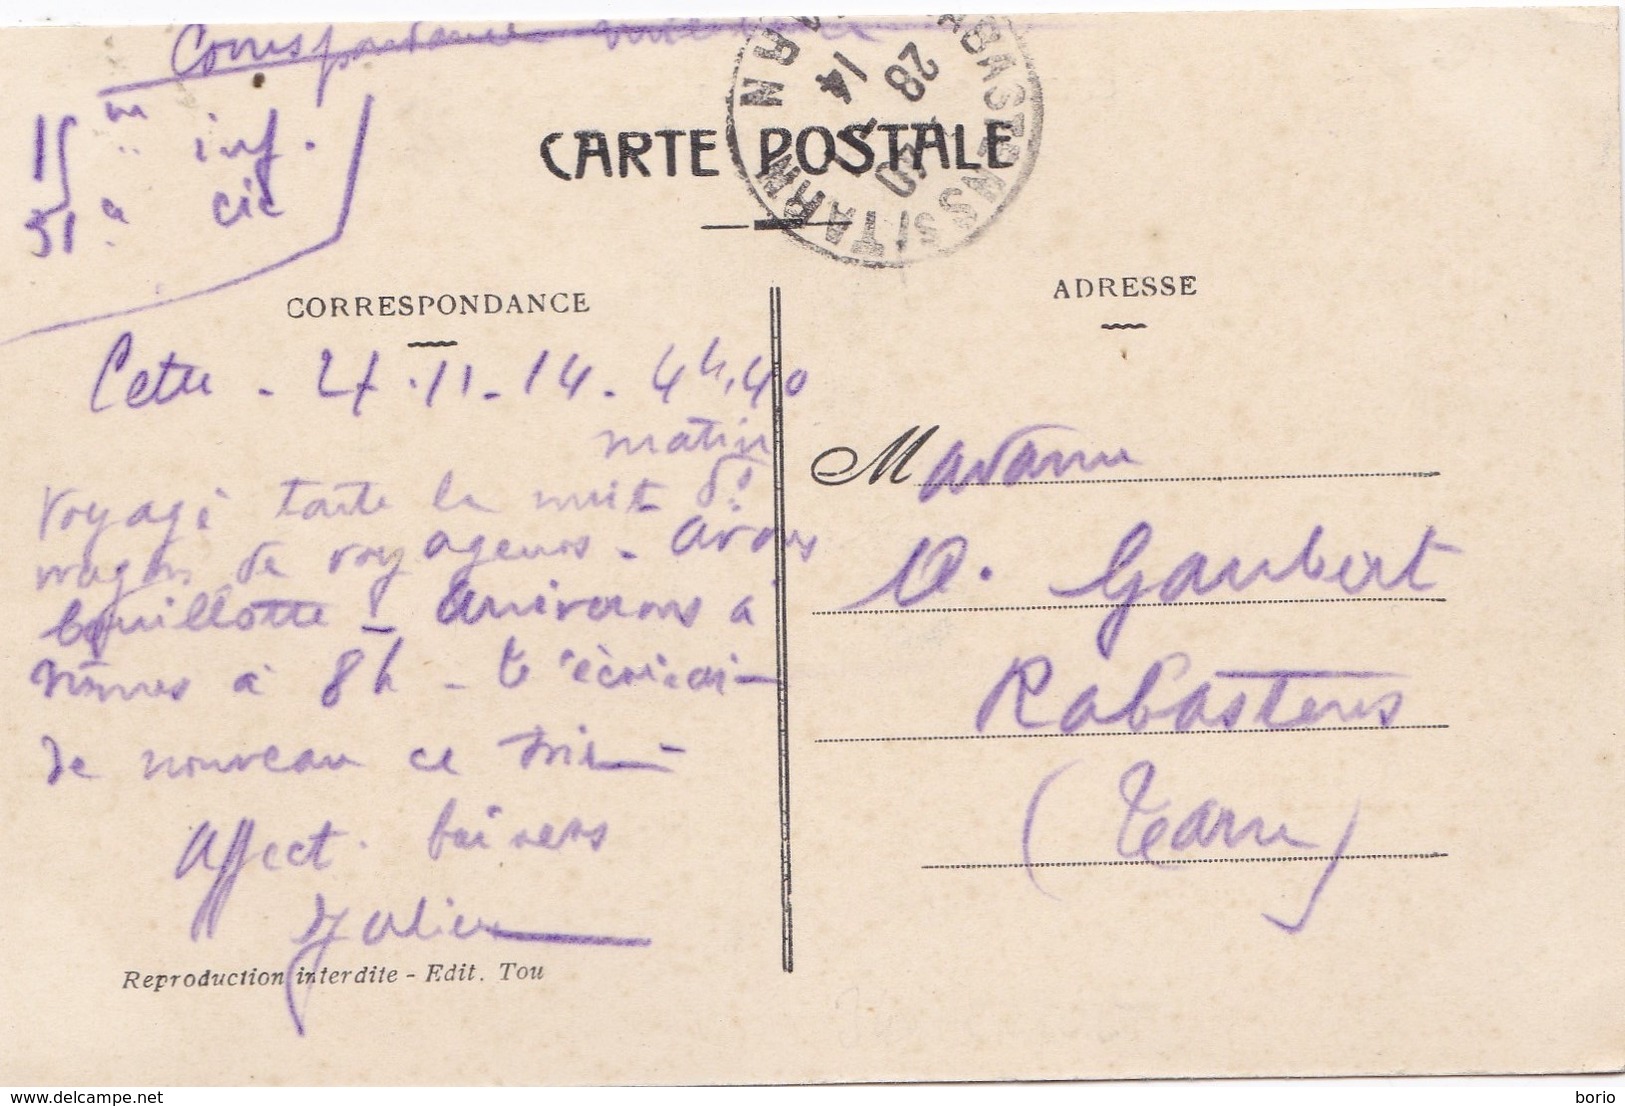 Correspondance militaire
15 me inf.
31 e cie
CARTE POSTALE
RABASTENS S/ TARN
TARN
28
14
CORRESPONDANCE
ADRESSE
Cette - 27.11-14. 4h.40
matin
Voyagé toute la nuit ds
wagon de voyageurs - avons
bouillotte - arriverons à
Nimes à 8h - t'écrirai
de nouveau ce soir
Affect. baisers
Julien
Reproduction interdite - Edit. Tou
Madame
Gaubert
Rabastens
(Tarn)
borio
delcampe.net